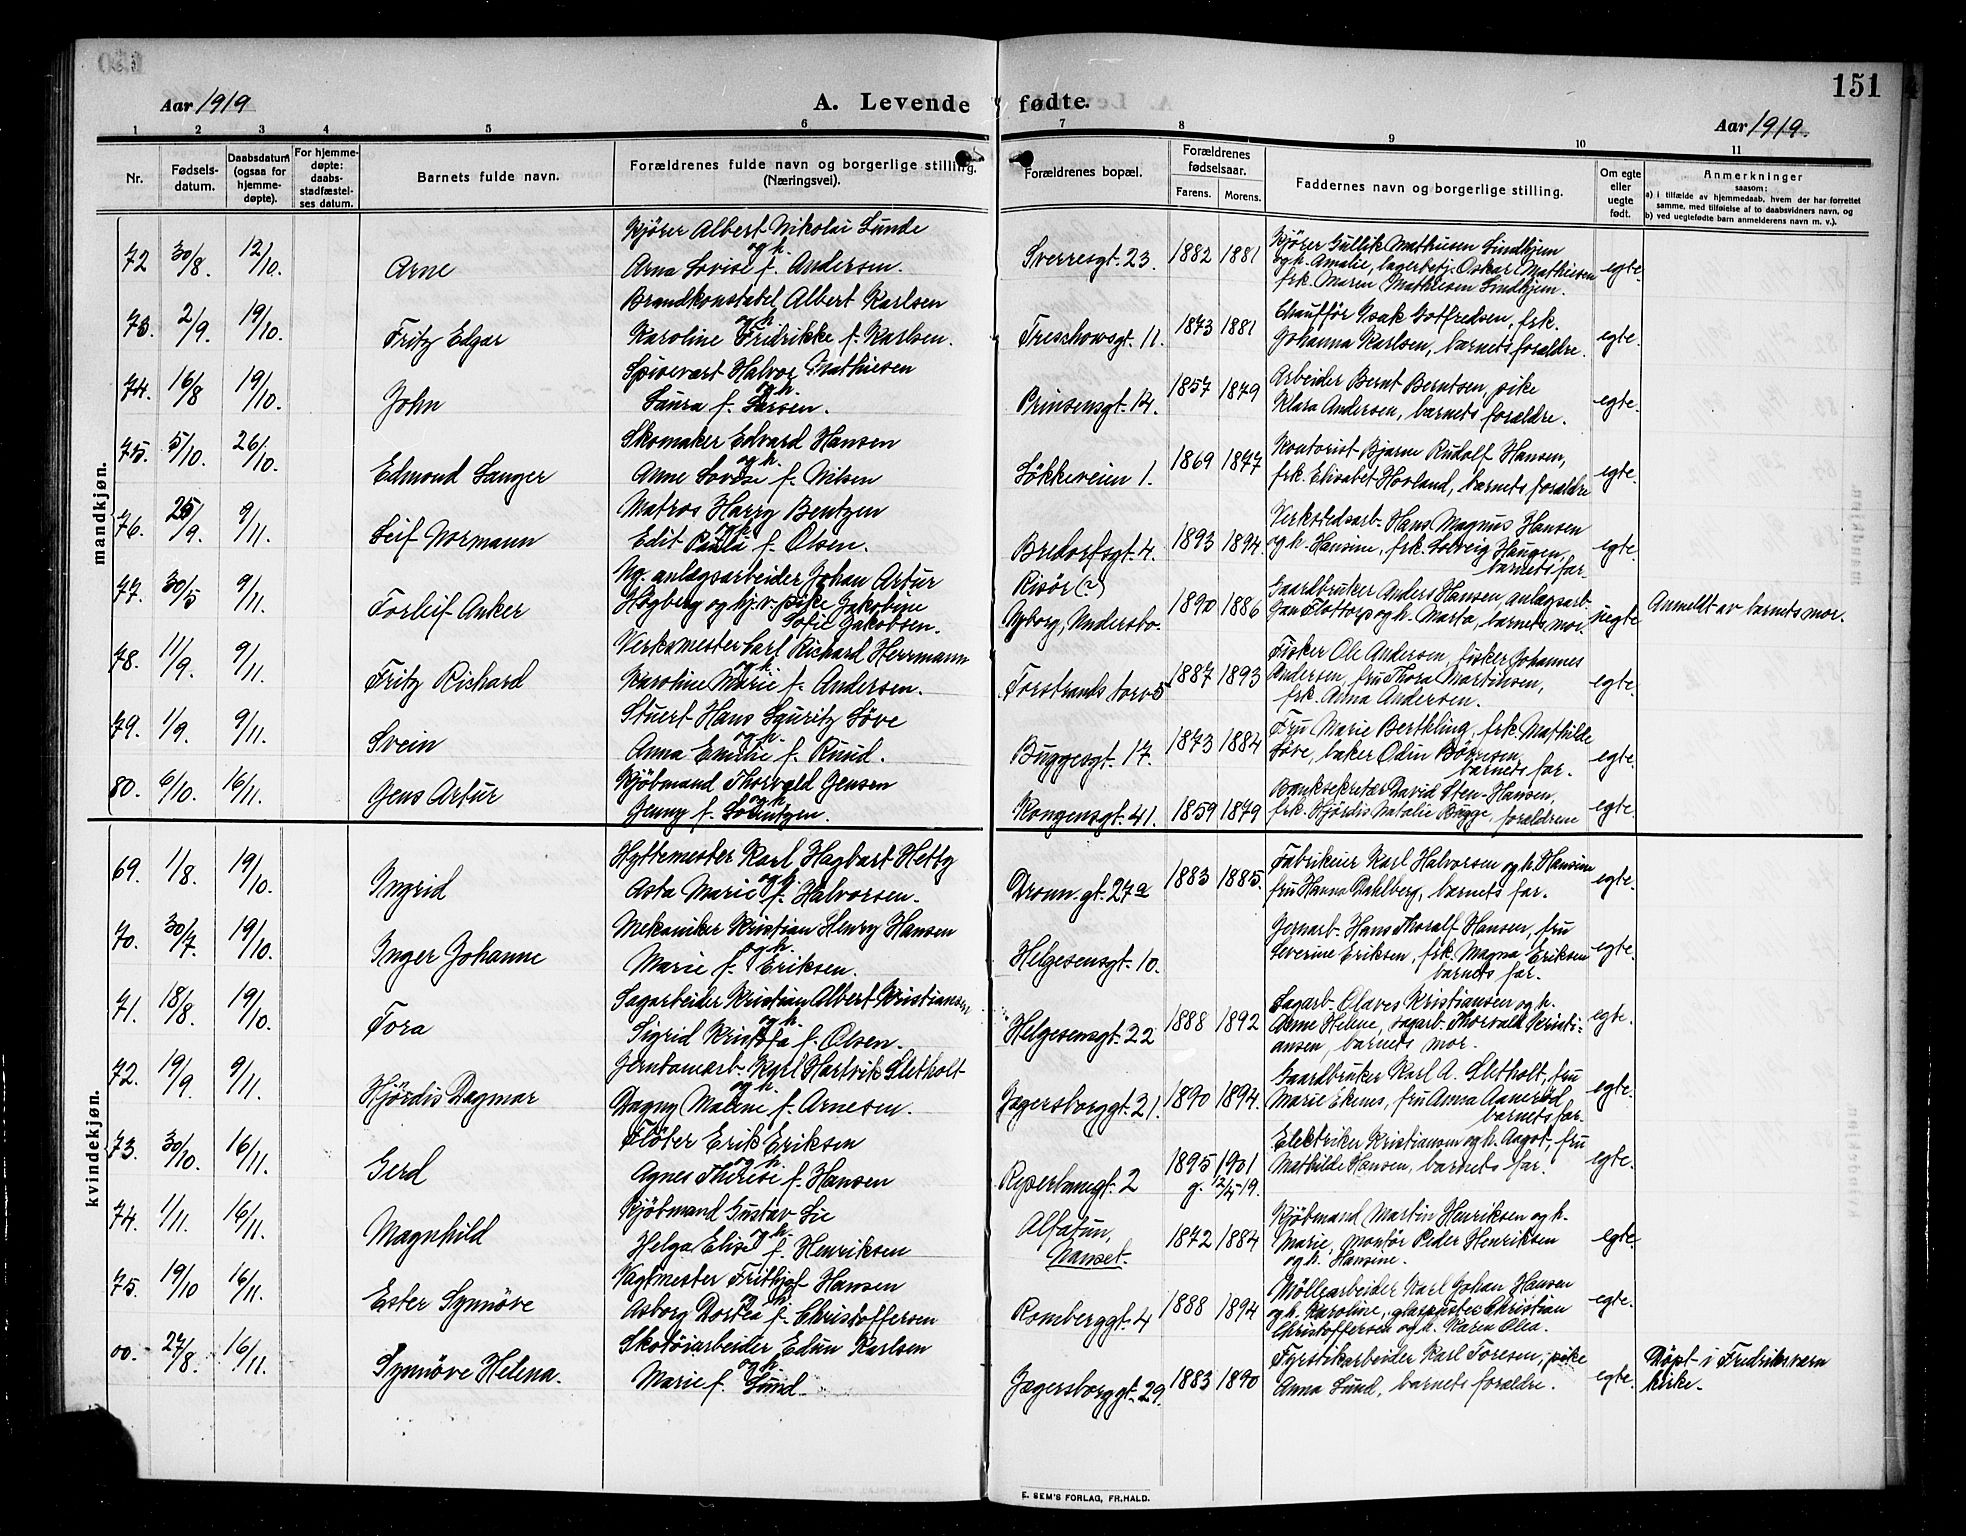 151
Aar 1919
A. Levende fødte.
Aar 1919.
1 2 3 4 5 6 7 8 9 10 11
Nr.
Fødsels-
datum.
Daabsdatum
(ogsaa for
hjemme-
døpte).
For hjemme-
døpte:
daabs-
stadfæstel-
ses datum.
Barnets fulde navn.
Forældrenes fulde navn og borgerlige stilling.
(Næringsvei).
Forældrenes bopæl.
Forældrenes
fødselsaar.
Farens. Morens.
Faddernes navn og borgerlige stilling.
Om egte
eller
uegte
født.
Anmerkninger
saasom:
a) i tilfælde av hjemmedaab, hvem der har forrettet
samme, med tilføielse af to daabsvidners navn, og
b) ved uegtefødte barn anmelderens navn m. v.).
mandkjøn.
72 30/8. 12/10. Arne
Kjører Albert Nikolai Lunde
og h.
Arna Lovise f. Andersen.
Sverresgt. 23. 1882 1881
Kjører Gullik Mathisen Lindhjem
og h. Amalie, lagerbetj. Oskar Mathisen
frk. Maren Mathisen Lindhjem.
egte.
73. 2/9. 19/10. Fritz Edgar
Brandkonstabel Albert Karlsen
og h.
Karoline Fridrikke f. Karlsen.
Treschowsgt. 11. 1873 1881
Chauffør Isak Gotfredsen, frk.
Johanna Karlsen, barnets forældre.
egte.
74. 16/8 19/10. John
Spisevært Halvor Mathisen
og h.
Laura f. Larsen.
Prinsensgt. 14. 1857 1879
Arbeider Bernt Berntsen, pike
Klara Andersen, barnets forældre.
egte.
75. 5/10. 26/10. Edmond Sanger
Skomaker Edvard Hansen
og h.
Anne Lovise f. Nilsen
Løkkeveien 1. 1869 1877
Kontorist Bjarne Rudolf Hansen,
frk. Elisabet Hovland, barnets forældre
egte.
76. 25/9. 9/11. Leif Normann
Matros Harry Bentzen
og h.
Edit Paula f. Olsen.
Bredorfsgt. 4. 1893 1894.
Verkstedsarb. Hans Magnus Hansen
og h. Hansine, frk. Solveig Haugen,
barnets far.
egte.
77. 30/5 9/11. Torleif Anker
Ug. anlægsarbeider Johan Artur
Högberg og hj.v. pike Jakobine
Sofie Jakobsen.
Risør (?)
Nyborg, Undersbo. 1890 1886
Gaardbruker Anders Hansen, anlægsarb.
Jan Flottorp og h. Marta, barnets mor.
uegte
Anmeldt av barnets mor.
78. 11/9. 9/11. Fritz Richard
Verksmester Carl Richard Herrmann
og h.
Karoline Marie f. Andersen.
Torstrands torv 5 1887 1893
Fisker Ole Andersen, fisker Johannes
Andersen, fru Thora Martinsen,
frk. Anna Andersen.
egte.
79. 1/9. 9/11. Svein
Stuert Hans Lauritz Løve
og h.
Anna Emilie f. Ruud.
Buggesgt. 17. 1873 1884
Fru Marie Bertkling, frk. Mathilde
Løve, baker Odin Børresen,
barnets far.
egte.
80. 6/10. 16/11. Jens Artur
Kjøbmand Thorvald Jensen
og h.
Jenny f. Lorentzen.
Kongensgt. 41. 1859 1879
Banksekretær David Sten-Hansen,
frk. Hjørdis Natalie Bugge, forældrene
egte.
kvindekjøn.
69. 1/8. 19/10. Ingrid
Hyttemester Karl Hagbart Hetty
og h.
Asta Marie f. Halvorsen.
Dronn. gt. 27a 1883 1885.
Fabrikeier Karl Halvorsen og h. Hansine
fru Hanna Dahlberg, barnets far.
egte.
70. 30/7. 19/10. Inger Johanne
Mekaniker Kristian Henry Hansen
og h.
Marie f. Eriksen.
Helgesensgt. 10.
Jernarb. Hans Thoralf Hansen, fru
Severine Eriksen, frk. Magna Eriksen
barnets far.
egte.
71. 18/8. 19/10. Tora
Sagarbeider Kristian Albert Kristiansen
og h.
Sigrid Kristofa f. Olsen.
Helgesensgt. 22 1888 1892
Sagarb. Olaves Kristiansen og h.
Anne Helene, sagarb. Thorvald Kristi-
ansen, barnets mor.
egte.
72. 19/9. 9/11. Hjørdis Dagmar
Jernbanearb. Karl Hartvik Sletholt
og h.
Dagny Malene f. Arnesen.
Jegersborggt. 21. 1890 1894.
Gaardbruker Karl A. Sletholt, fru
Marie Ekenes, fru Anna Aanerød
barnets far.
egte.
73. 30/10. 16/11. Gerd
Fløter Erik Eriksen
og h.
Agnes Therese f. Hansen
Reperbanegt. 2 1895 1901
g. 12/4 19.
Elektriker Kristiansen og h. Aagot, fru
Mathilde Hansen, barnets far.
egte.
74. 1/11. 16/11. Magnhild
Kjøbmand Gustav Lie
og h.
Helga Elise f. Henriksen
Alfatun,
Nanset. 1872 1884
Kjøbmand Martin Henriksen og h.
Marie, montør Peder Henriksen
og h. Hansine.
egte.
75. 19/10 16/11. Ester Synnøve
Vagtmester Frithjof Hansen
og h.
Asborg Dortea f. Christoffersen
Romberggt. 4 1888 1894
Møllearbeider Karl Johan Hansen
og h. Karoline, glaspuster Christian
Christoffersen og h. Karen Olea.
egte.
00. 27/8. 16/11. Synnøve Helena.
Skotøiarbeider Edvin Karlsen
og h.
Marie f. Lund.
Jegersborggt. 29. 1883 1890
Fyrstikarbeider Karl Toresen, pike
Anna Lund, barnets forældre.
egte.
Døpt i Fredriksværn
kirke.
E. SEM'S FORLAG, FR.HALD.